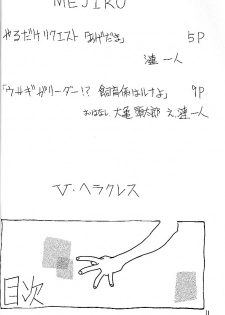 MEJIRO
やるだけリクエスト「あげだま」 5P
漣 一人
「ウサギがリーダー!? 飼育係はルナよ」 9P
おはなし 大亀 頭太郎 え 漣 一人
V・ヘラクレス
目次